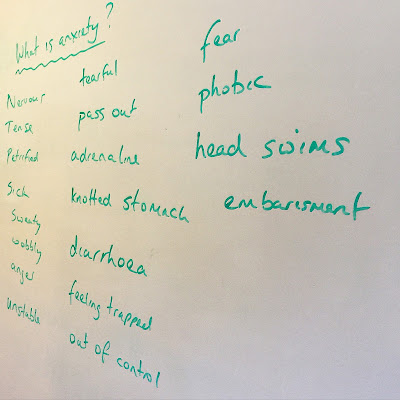 What is anxiety?
Nervous
Tense
Petrified
Sick
Sweaty
wobbly
anger
unstable
tearful
pass out
adrenaline
knotted stomach
diarrhoea
feeling trapped
out of control
fear
phobic
head swims
embarisment